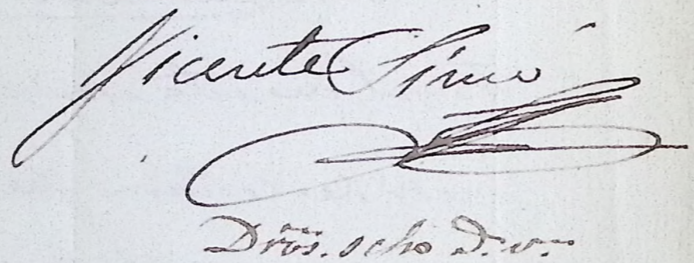 Vicente Simó
Dros. ocho rs. vn.